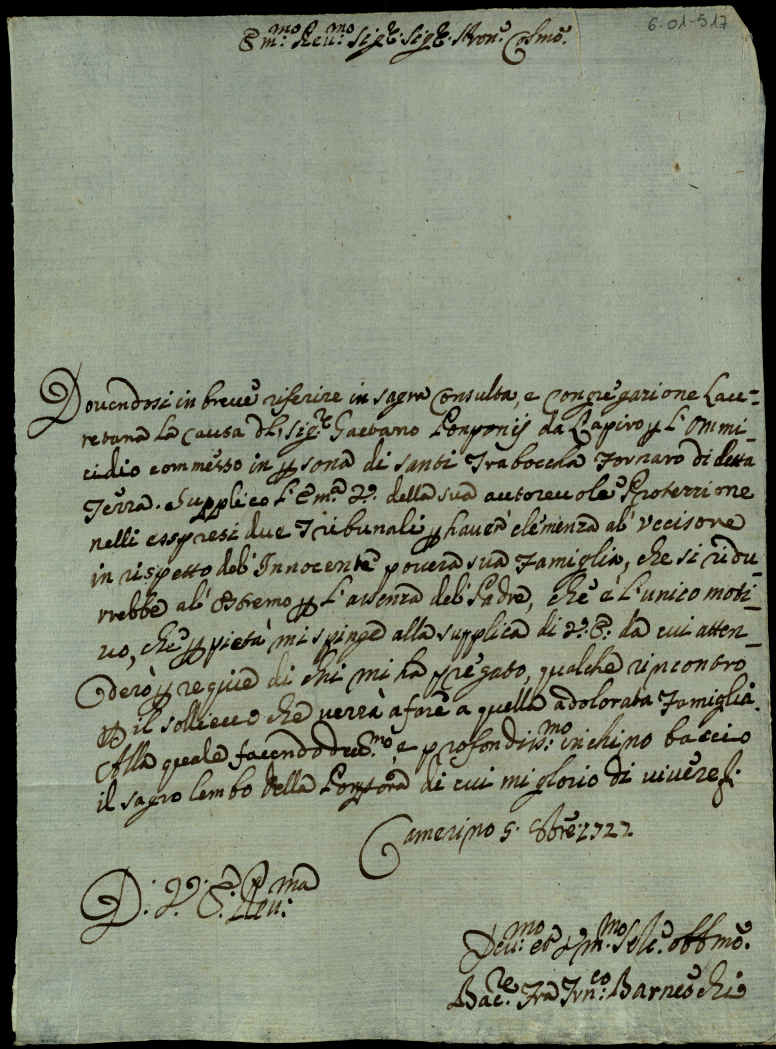 6-01-517
Em:mo Reu:mo Sig:re Sig:re Pron:e Colmo:
Douendosi in breue riferire in sagra Consulta, e Congregazione Laure=
retana la causa del Sig:re Gaetano Ponponij da Capiro p l'Ommi-
cidio commesso in psona di santi Trabocchа Fornaro di detta
Terra. Supplico l'Em:a V: della sua autoreuole Protezzione
nelli espresi due Tribunali p hauer clemenza al' Vccisore
in rispetto del' Innocente pouera sua Famiglia, che si ridu-
rrebbe al' estremo p l'assenza del' Padre, che è l'unico moti-
uo, che p pietà mi spinge alla supplica di V: E: da cui atten-
derò p requie di chi mi ha pregato, qualche rincontro
p il sollieuo che uerrà a fare a quella adolorata Famiglia.
Alla quale facendo deu:mo e profondiss:mo inchino baccio
il sagro lembo della Porpora di cui mi glorio di uiuere
Camerino 5. 8bre 1727
D: V: E: Reu:ma
Deu:mo et Vm:mo Se:re obbmo:
Bac:re Fra Frn:co Barneschi